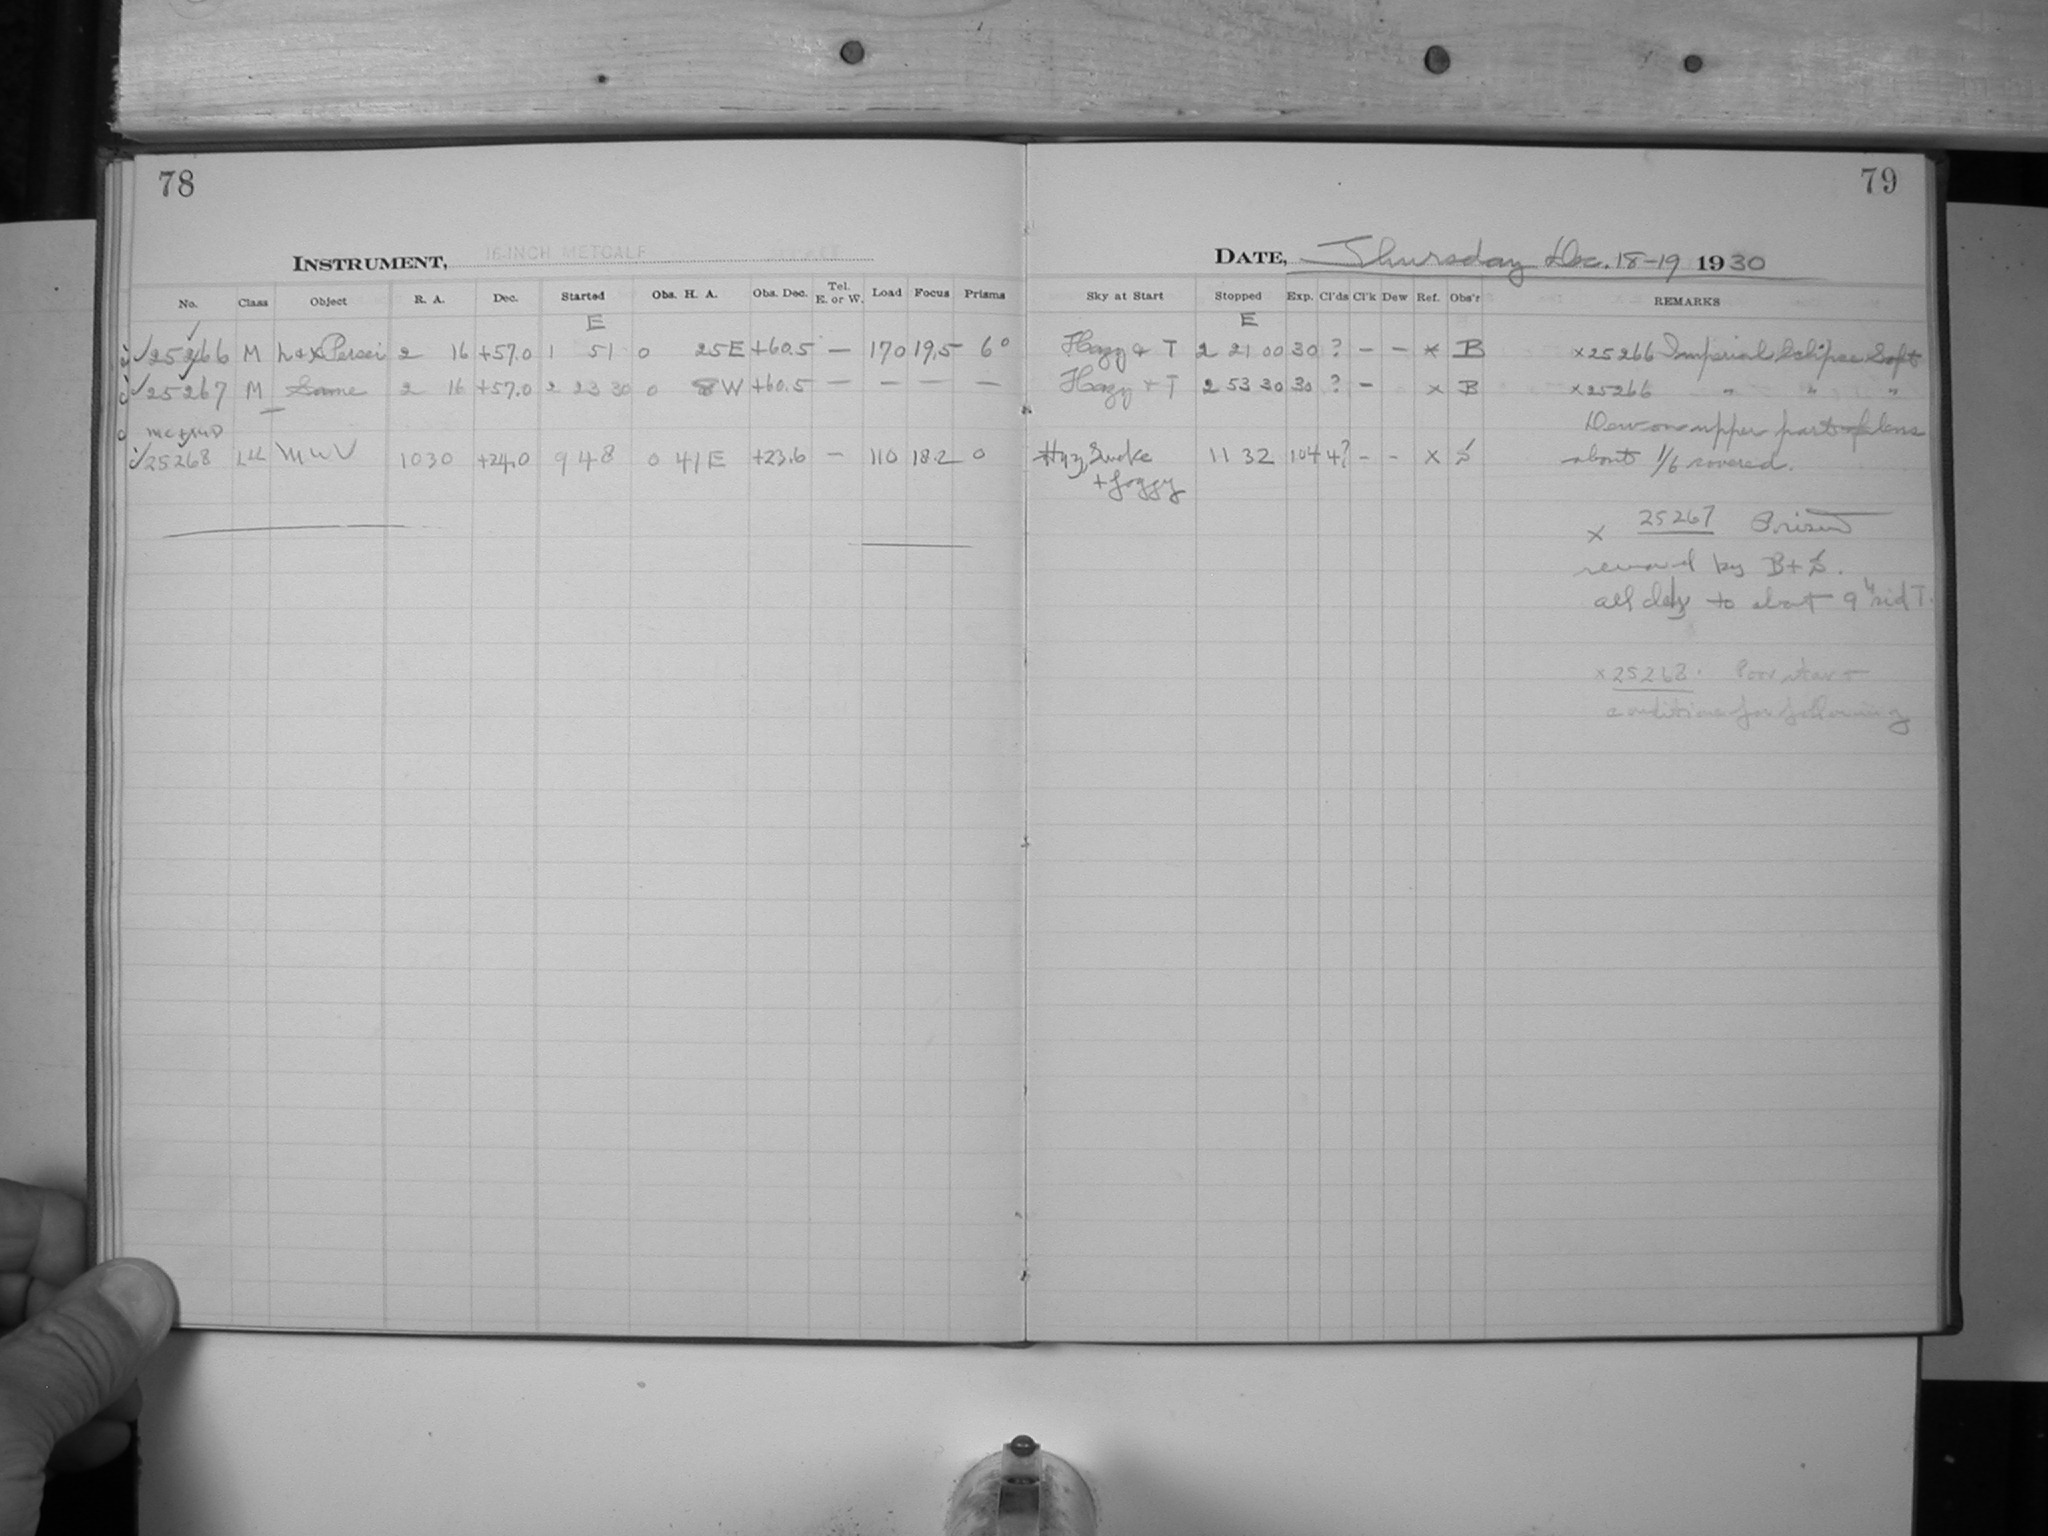 78
79
INSTRUMENT, 16-INCH METCALF
DATE, Thursday Dec. 18-19 1930
No. Class Object R. A. Dec. Started Obs. H. A. Obs. Dec. Tel. E. or W. Load Focus Prisms Sky at Start Stopped Exp. Cl'ds Cl'k Dew Ref. Obs'r REMARKS
E E
✓25266 M h+χ Persei 2 16 +57.0 1 51 0 25E +60.5 — 170 19.5 6° Hazy + T 2 21 00 30 ? - - x B x25266 Imperial Eclipse Soft
✓25267 M Same 2 16 +57.0 2 23 30 0 8W +60.5 — — — — Hazy + T 2 53 30 30 ? - x B x25266 " " "
Dew on upper part of lens
✓25268 10 30 +24.0 9 48 0 41E +23.6 — 110 18.2 0 Hzy, Smoke 11 32 104 4? - - x S about 1/6 covered.
+ foggy
x 25267 Prism
removed by B+S.
to about 9 sid T.
x25268. Poor
conditions for following